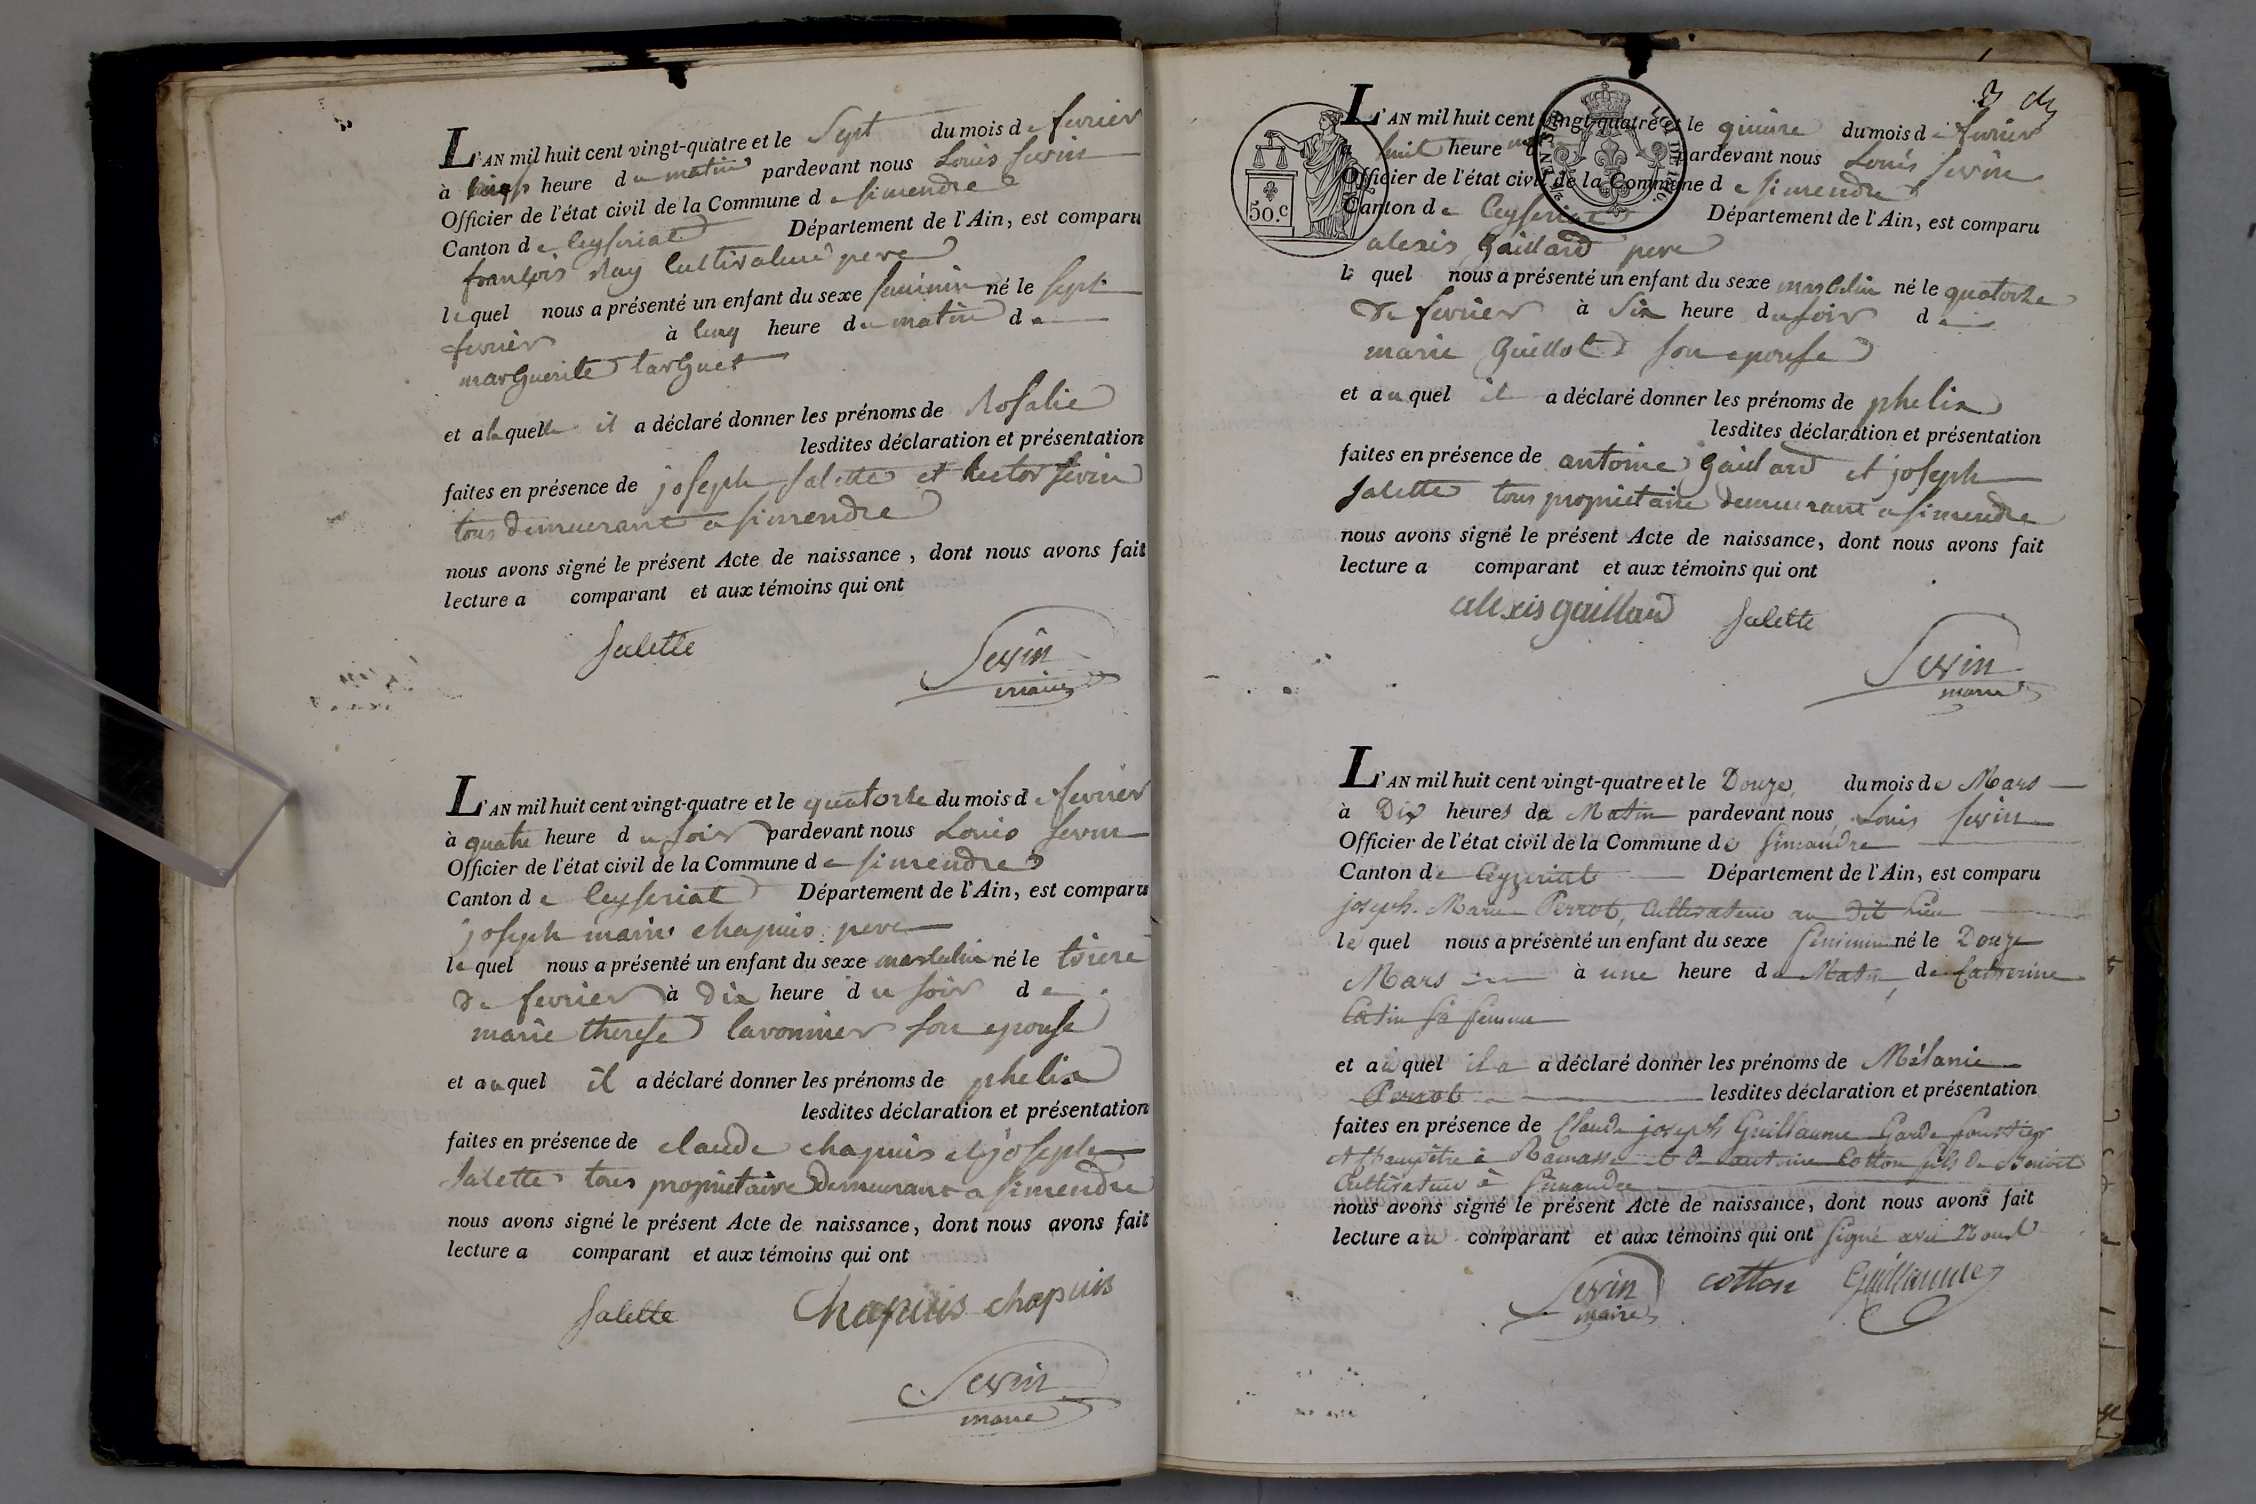 L'AN mil huit cent vingt-quatre et le Sept du mois de fevrier
à cinq heure du matin pardevant nous Louis Sevin
Officier de l'état civil de la Commune de simendre
Canton de Ceyseriat Département de l'Ain, est comparu
françois Ray Cultivateur pere
lequel nous a présenté un enfant du sexe feminin né le sept
fevrier à cinq heure du matin de
marguerite targuet
et alaquelle il a déclaré donner les prénoms de Rosalie
lesdites déclaration et présentation
faites en présence de joseph Salette et hector Sevin
tous demeurant a simendre
nous avons signé le présent Acte de naissance, dont nous avons fait
lecture a comparant et aux témoins qui ont
Salette Sevin
maire
L'AN mil huit cent vingt-quatre et le quatorze du mois de fevrier
à quatre heure du soir pardevant nous Louis Sevin
Officier de l'état civil de la Commune de simendre
Canton de Ceyseriat Département de l'Ain, est comparu
joseph marie chapuis pere
lequel nous a présenté un enfant du sexe masculin né le treize
de fevrier à dix heure du soir de
marie therese lavonnier son epouse
et auquel il a déclaré donner les prénoms de phelix
lesdites déclaration et présentation
faites en présence de claude chapuis et joseph
Salette tous proprietaire demeurant a simendre
nous avons signé le présent Acte de naissance, dont nous avons fait
lecture a comparant et aux témoins qui ont
Salette Chapuis chapuis
Sevin
maire
3
L'AN mil huit cent vingt-quatre et le quinze du mois de fevrier
à huit heure pardevant nous Louis Sevin
Officier de l'état civil de la Commune de simendre
50.c
Canton de Ceyseriat Département de l'Ain, est comparu
alexis Gaillard pere
lequel nous a présenté un enfant du sexe masculin né le quatorze
de fevrier à Six heure du soir de
marie Guillot son epouse
et auquel il a déclaré donner les prénoms de phelix
lesdites déclaration et présentation
faites en présence de antoine Gaillard et joseph
Salette tous proprietaire demeurant a simendre
nous avons signé le présent Acte de naissance, dont nous avons fait
lecture a comparant et aux témoins qui ont
alexis gaillard Salette
Sevin
maire
L'AN mil huit cent vingt-quatre et le Douze du mois de Mars
à Dix heures de Matin pardevant nous Louis Sevin
Officier de l'état civil de la Commune de Simandre
Canton de Ceyzeriat Département de l'Ain, est comparu
joseph Marie Perrot, Cultivateur au dit lieu
lequel nous a présenté un enfant du sexe feminin né le Douze
Mars à une heure de Matin de Catherine
sa femme
et auquel il a a déclaré donner les prénoms de Mélanie
Perrot lesdites déclaration et présentation
faites en présence de Claude joseph Guillaume Garde forestier
et Champêtre à Ramasse et de antoine Cotton fils de Benoit
Cultivateur à Simandre
nous avons signé le présent Acte de naissance, dont nous avons fait
lecture au comparant et aux témoins qui ont signé avec Nous
Sevin Cotton Guillaume
maire